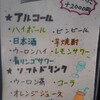 +2000円
★アルコール
・ハイボール ・ビンビール
・日本酒 ・芋焼酎
・ウーロンハイ・レモンサワー
・青リンゴサワー
★ソフトドリンク
・ウーロン茶 ・コーラ
・オレンジジュース